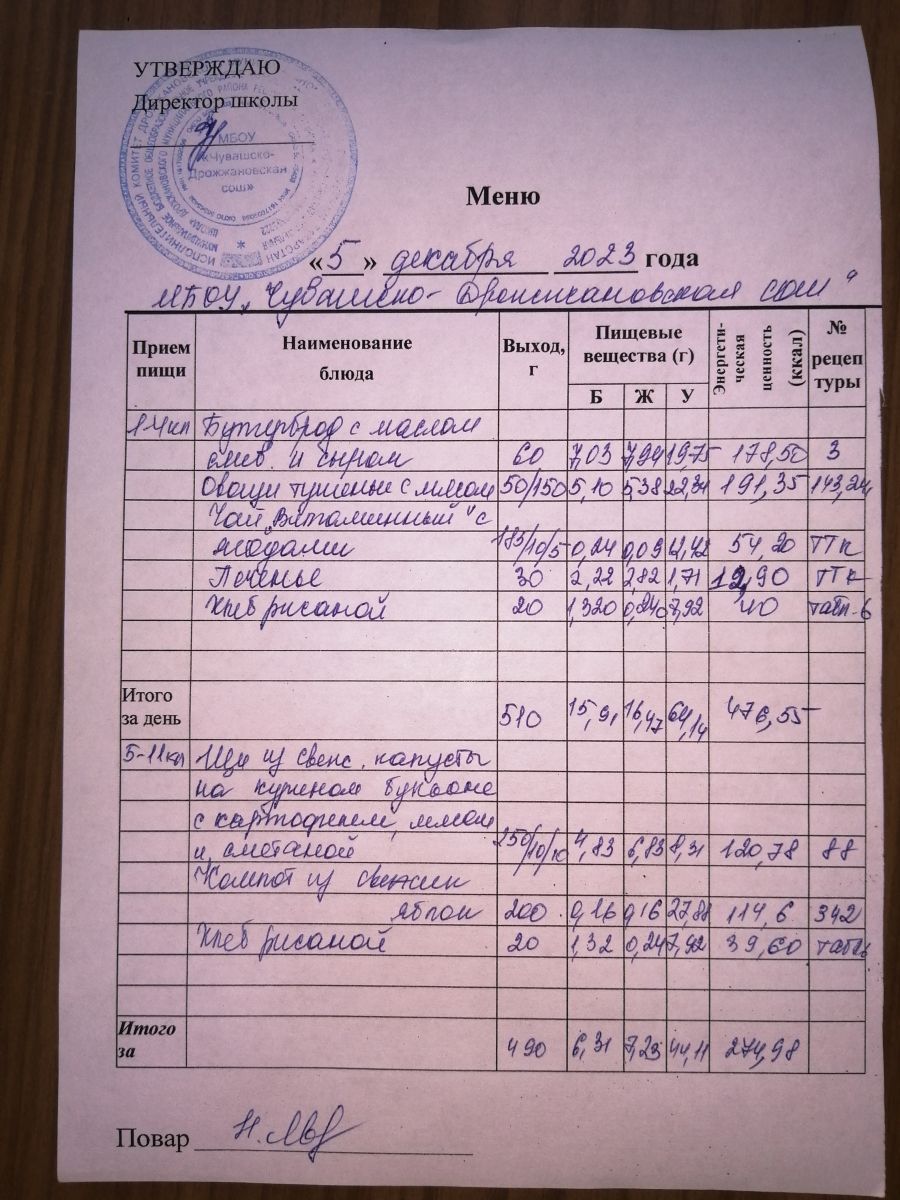 УТВЕРЖДАЮ
Директор школы
МБОУ
«Чувашско-
Дрожжановская
сош»
Меню
«5» декабря 2023 года
МБОУ „Чувашско-Дрожжановская сош"
Прием пищи Наименование блюда Выход, г Пищевые вещества (г) Б Ж У Энергети-ческая ценность (ккал) № рецеп туры
1-4 кл Бутерброд с маслом
слив. и сыром 60 7,03 7,94 19,75 178,50 3
Овощи тушеные с мясом 50/150 5,10 5,38 22,34 191,35
Чай „Витаминный" с
ягодами 185/10/5 0,24 0,09 54,20 ТТК
Печенье 30 2,22 2,82 1,71 12,90 ТТК
Хлеб рисаной 20 1,320 0,240 7,92 40 табл-6
Итого
за день 510 15,91 16,47 64,14 476,55
5-11 кл Щи из свеж. капусты
на курином бульоне
с картофелем, мясом
и сметаной 250/10/10 4,83 6,83 8,31 120,78 88
Компот из свежих
яблок 200 0,16 0,16 27,88 114,6 342
Хлеб рисаной 20 1,32 0,24 7,92 39,60 табл6
Итого
за 490 6,31 7,23 44,11 274,98
Повар